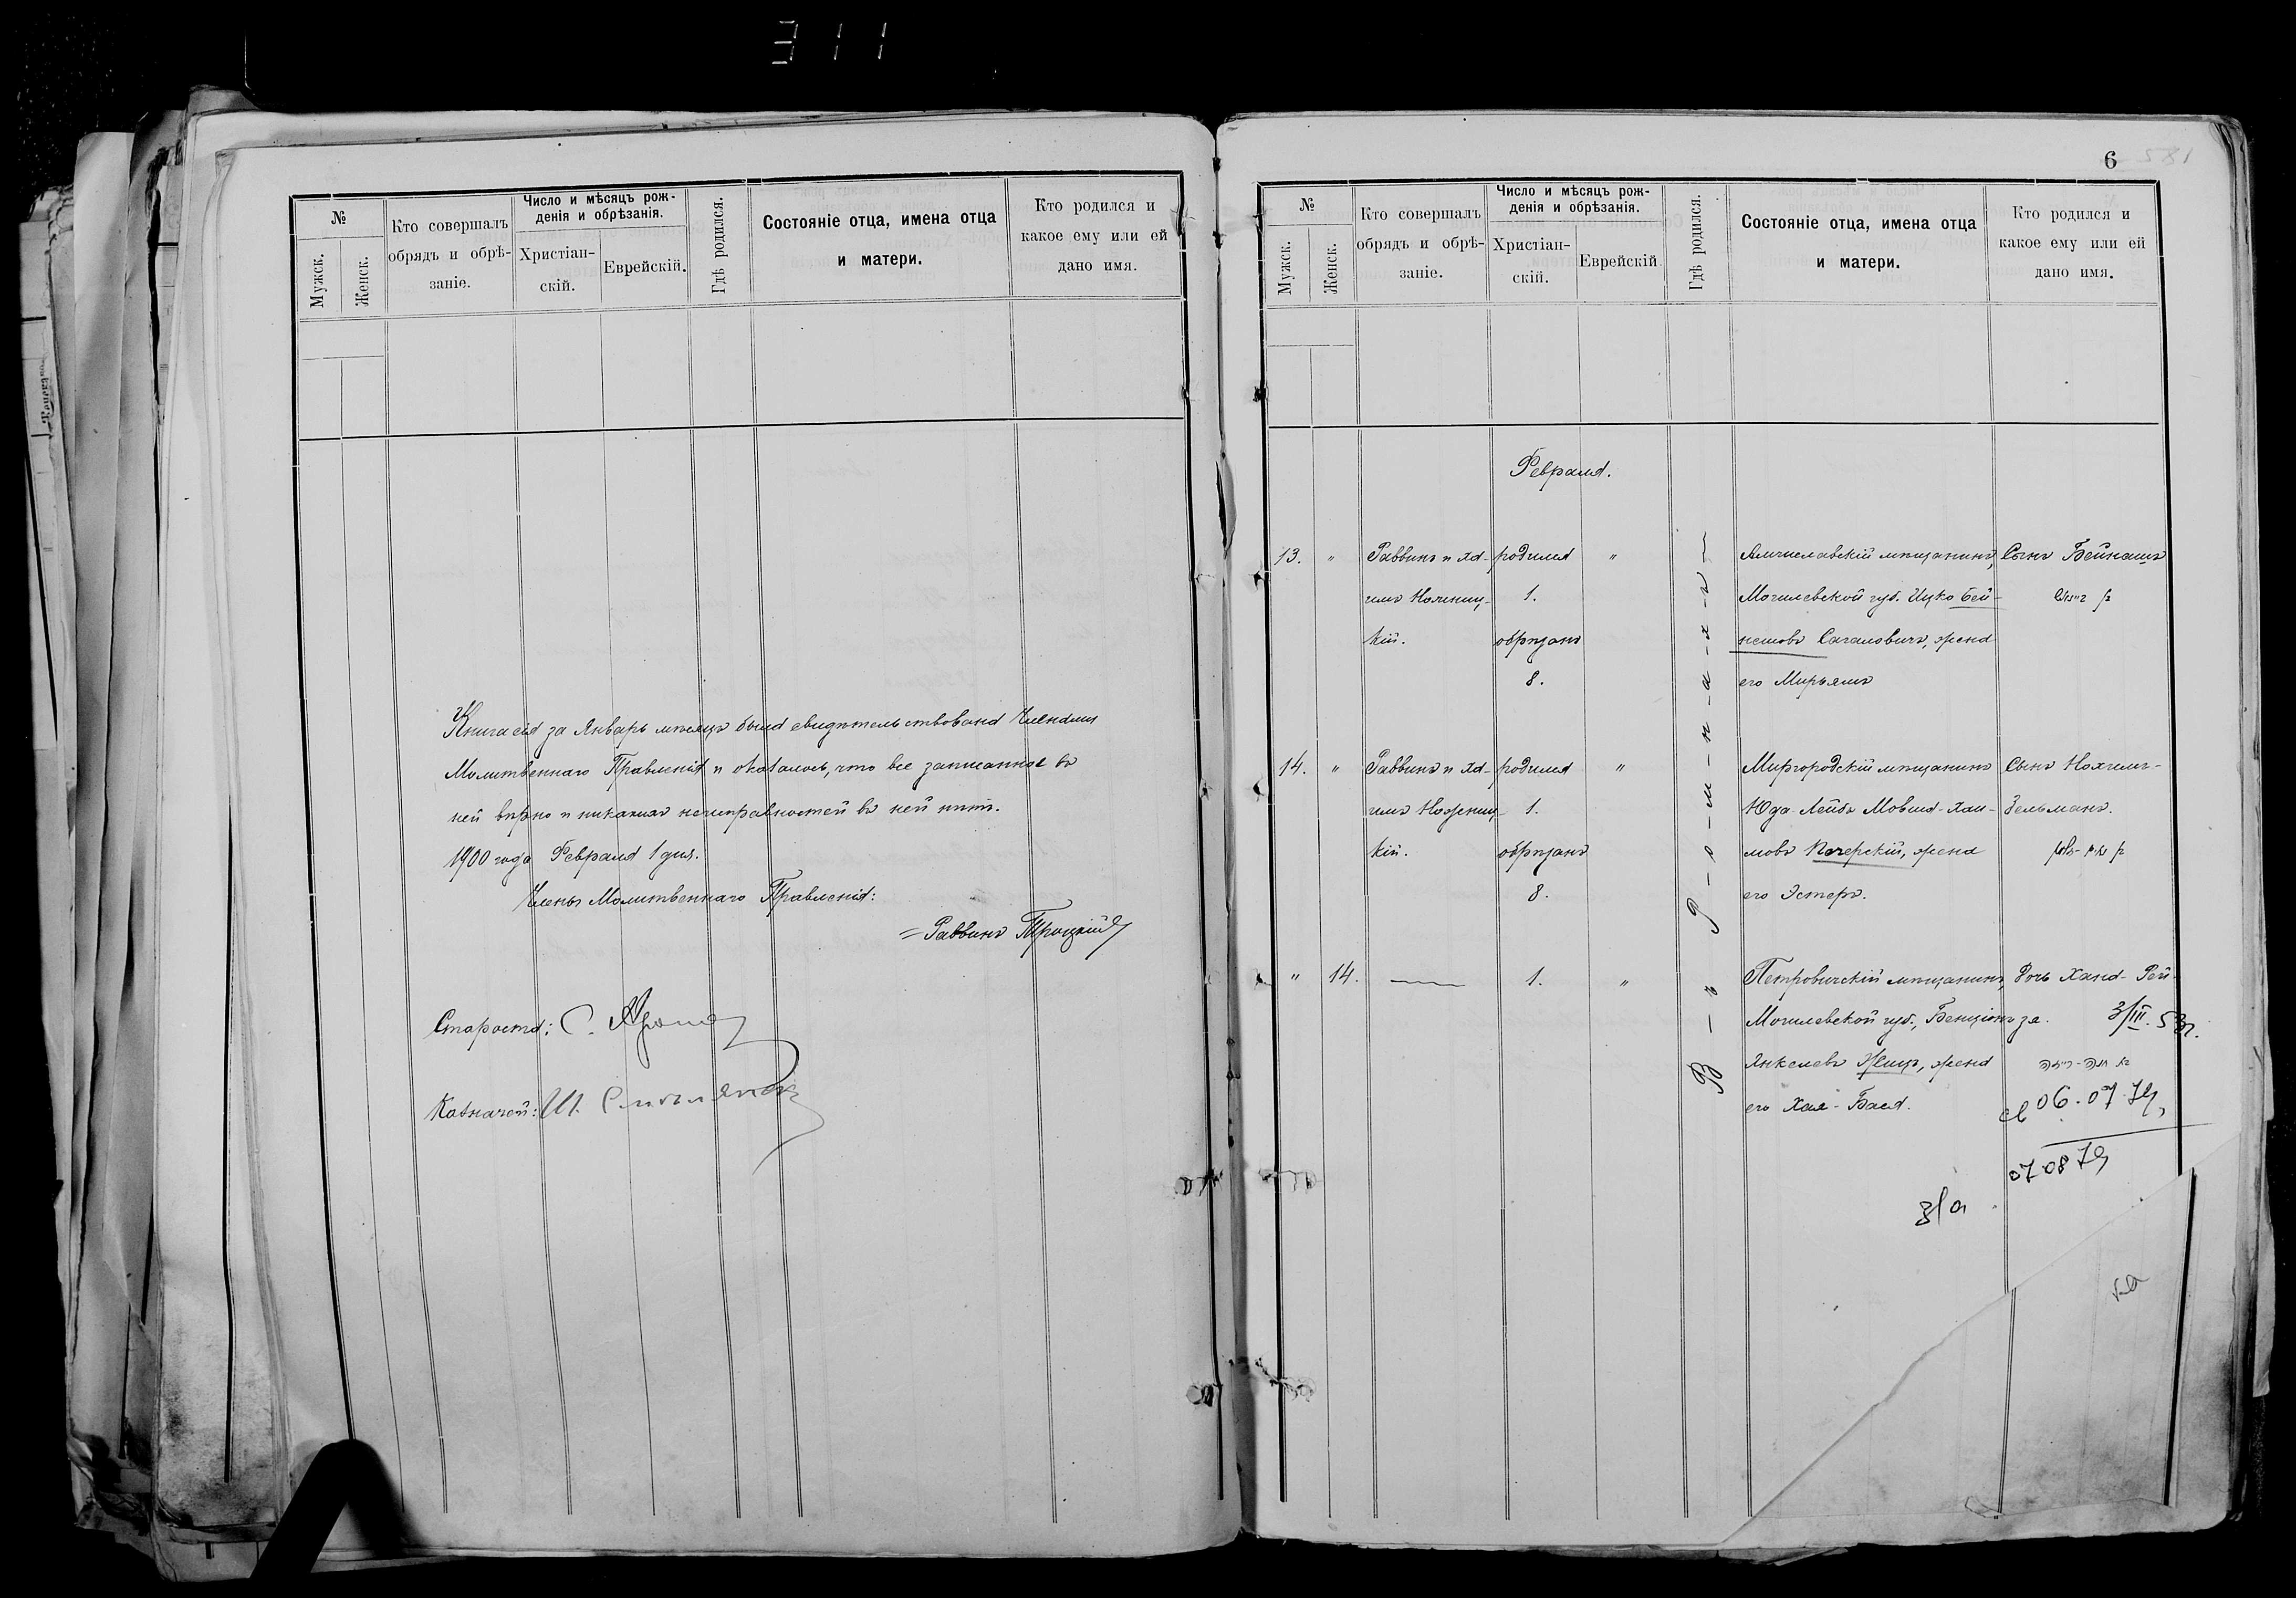 311
№
Мужск.
Женск.
Кто совершалъ
обрядъ и обрѣ-
заніе.
Число и мѣсяцъ рож-
денія и обрѣзанія.
Христіан-
скій.
Еврейскій.
Гдѣ родился.
Состояніе отца, имена отца
и матери.
Кто родился и
какое ему или ей
дано имя.
Книга сія за Январь мѣсяцъ была свидѣтельствована Членами
Молитвеннаго Правленія и оказалось, что все записанное въ
ней вѣрно и никакихъ неисправностей въ ней нѣтъ.
1900 года Февраля 1 дня.
Члены Молитвеннаго Правленія:
Раввинъ Троцкій
Староста: С.
Казначей: И.
6 581
№
Мужск.
Женск.
Кто совершалъ
обрядъ и обрѣ-
заніе.
Число и мѣсяцъ рож-
денія и обрѣзанія.
Христіан-
скій.
Еврейскій.
Гдѣ родился.
Состояніе отца, имена отца
и матери.
Кто родился и
какое ему или ей
дано имя.
Февраля.
В-ъ Р-о-м-н-а-х-ъ
13. " Раввинъ и Ха- родился " мѣщанинъ, Сынъ Бейнашъ
имъ 1. Могилевской губ. Ицко Бей-
кій. обрѣзанъ нешовъ Сагаловичъ, жена
8. его Мирьямъ
14. " Раввинъ и Ха- родился " Миргородскій мѣщанинъ Сынъ Нохимъ-
имъ 1. Юда-Лейбъ Мовша-Хаи- Зельманъ.
кій. обрѣзанъ мовъ Печерскій, жена
8. его Эстеръ.
" 14. — 1. " Петровичскій мѣщанинъ, Дочь Хана-Рей-
Могилевской губ., Бенціонъ за. 3/III.53г.
Янкелевъ Жицъ, жена בת חנה-רייזה
его Хая-Бася. 06.07.79
07 08 79